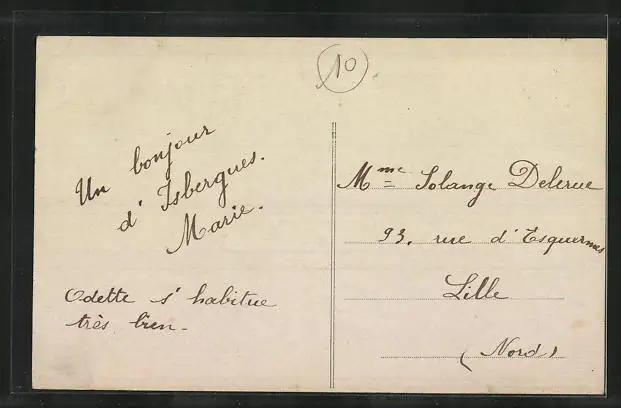 10
Un bonjour
d'Isbergues.
Marie.
Odette s'habitue
très bien -
Mme Solange Delerue
93, rue d'Esquermes
Lille
(Nord)